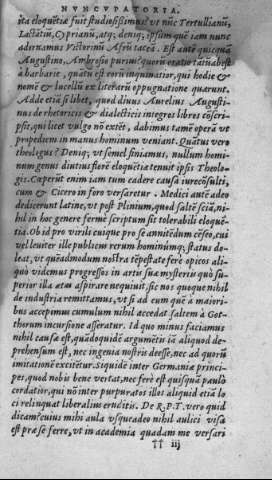 NVNCVPATORIA.
ita eloquētiæ fuit studiosissimus? vt nūc Tertullianū,
Lactātiū, Cyprianū, atq; deniq; ipsum quē iam nunc
adirnamus Victorinū Afrū taceā. Est ante quisquā
Augustino, Ambrosio purius? quorū oratio tāta abest
a barbarie, quātū est rarū inquinatior, qui hodie &
nomē & lucellū ex literarū oppugnatione quærunt.
Adde etiā si libet, quod diuus Aurelius Augusti-
nus de rhetoricis & dialecticis integros libros cōscri-
psit, qui licet vulgo nō extēt, dabimus tamē operā vt
propediem in manus hominum veniant. Quātus vero
theologus? Deniq; vt semel finiamus, nullum homi-
num genus diutius ferè eloquētiā tenuit ipsis Theolo-
gis. Cœperūt enim iam tum cadere causa iurecōsulti,
cum & Cicero in foro versaretur. Medici ante adeo
dedicerunt latine, vt post Plinium, quod saltē sciā, ni-
hil in hoc genere fermē scriptum sit tolerabili eloquē-
tia. Ob id pro virili cuique pro se annitēdum cēseo, cui
vel leuiter illic publicus rerum hominumq; status do-
leat, vt quēadmodum nostra tēpestate ferè opicos ali-
quo videmus progressos in artis sua mysteriis quò su-
perior illa ætas aspirare nequiuit, sic nos quoque nihil
de industria remittamus, vt si ad eum què à maiori-
bus accepimus cumulum nihil accedat saltem à Got-
thorum incursione asseratur. Id quo minus faciamus
nihil causa est, quādoquidē argumētis iā aliquod de-
prehensum est, nec ingenia nostris deesse, nec ad quorū
imitationē excitētur. Siquidē inter Germaniæ princi-
pes, quod nobis bene vertat, nec ferè est quisquā paulò
cordatior, qui nō inter purpuratos illos aliquid etiā lo
ci relinquat liberaliter eruditis. De R.P.T. vero quid
dicam? cuius mihi aula vsqueadeo nihil aulici visa
est præ se ferre, vt in academia quadam me versari
†† iij